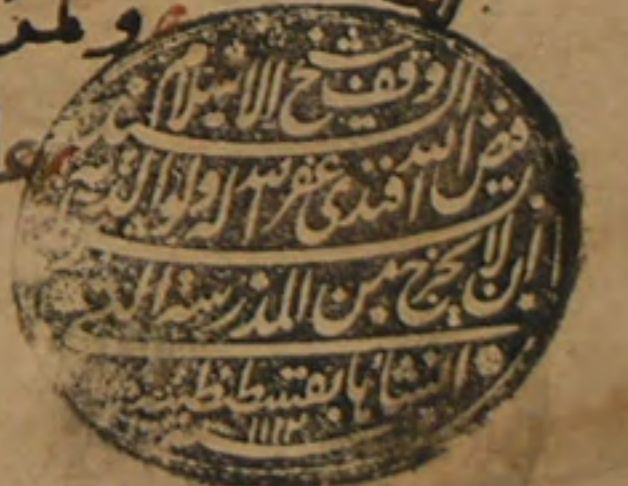 وقف شيخ الاسلام السيد
فيض الله افندى غفر الله له ولوالديه
ان لا يخرج من المدرسة التي
انشاها بقسطنطينية
سنة ١١١٢